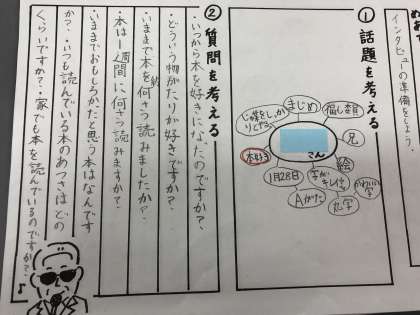 インタビューの準備をしよう。
① 話題を考える
まじめ
兄
さん
絵
本好き
1月28日
字がキレイ
かわいい字
Aがた
丸字
② 質問を考える
・いつから本を好きになったのですか？
・どういう物がたりが好きですか？
・いままで本を何さつ読みましたか？
・本は一週間に何さつ読みますか？
・いままでおもしろかったと思う本はなんです
か？・いつも読んでいる本のあつさはどの
くらいですか？・家でも本を読んでいるのですか？